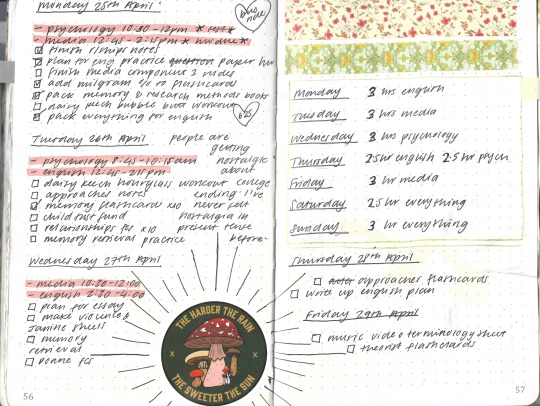 Monday 25th April
bus ride
- psychology 10:30 - 12pm
- media 12:45 - 2:15pm
finish r/ships notes
plan for eng practice question paper hw
finish media component 1 slides
add milgram to flashcards
pack memory & research methods books
daisy keech bubble butt workout
pack everything for english
Tuesday 26th April
- psychology 8:45 - 10:15am
- english 12:45 - 2:15pm
daisy keech hourglass workout
approaches notes
memory flashcards x10
child trust fund
relationships fcs x10
memory retrieval practice
people are
getting
nostalgic
about
college
ending. i've
never felt
nostalgia in
present tense
before.
Wednesday 27th April
- media 10:30 - 12:00
- english 2:30 - 4:00
plan for essay
make violence &
janine
memory
retrieval
THE HARDER THE RAIN
THE SWEETER THE SUN
56
Monday 3 hrs english
Tuesday 3 hrs media
Wednesday 3 hrs psychology
Thursday 2.5hr english 2.5 hr psych
Friday 3 hr media
Saturday 2.5 hr everything
Sunday 3 hr everything
Thursday 28th April
approaches flashcards
write up english plan
Friday 29th April
music video terminology sheet
theorist flashcards
57